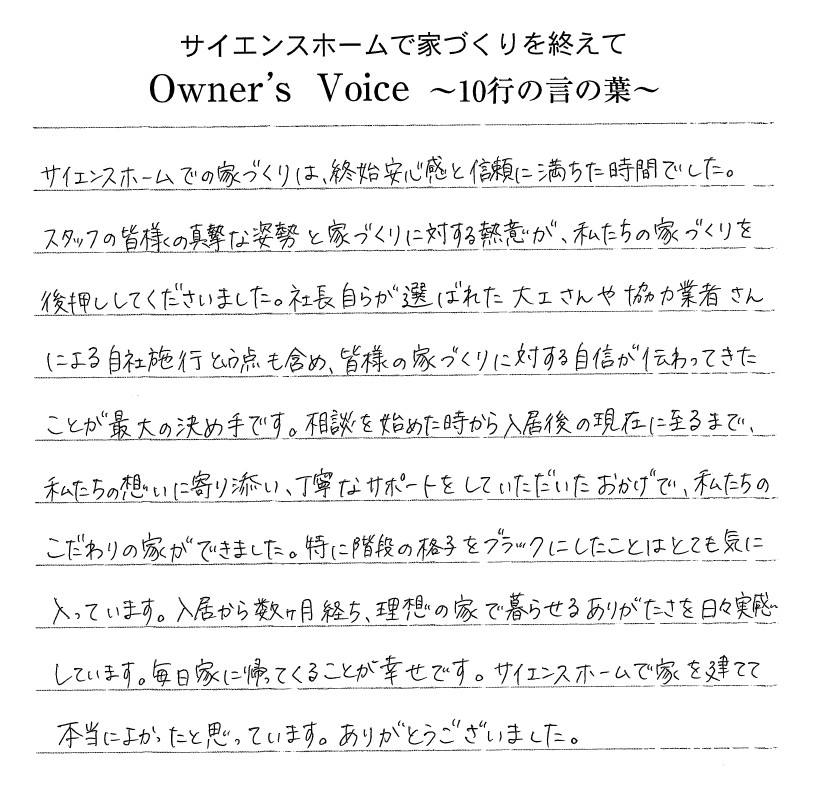 サイエンスホームで家づくりを終えて
Owner's Voice ～10行の言の葉～
サイエンスホームでの家づくりは、終始安心感と信頼に満ちた時間でした。
スタッフの皆様の真摯な姿勢と家づくりに対する熱意が、私たちの家づくりを
後押ししてくださいました。社長自らが選ばれた大工さんや協力業者さん
による自社施行という点も含め、皆様の家づくりに対する自信が伝わってきた
ことが最大の決め手です。相談を始めた時から入居後の現在に至るまで、
私たちの想いに寄り添い、丁寧なサポートをしていただいたおかげで、私たちの
こだわりの家ができました。特に階段の格子をブラックにしたことはとても気に
入っています。入居から数ヶ月経ち、理想の家で暮らせるありがたさを日々実感
しています。毎日家に帰ってくることが幸せです。サイエンスホームで家を建てて
本当によかったと思っています。ありがとうございました。